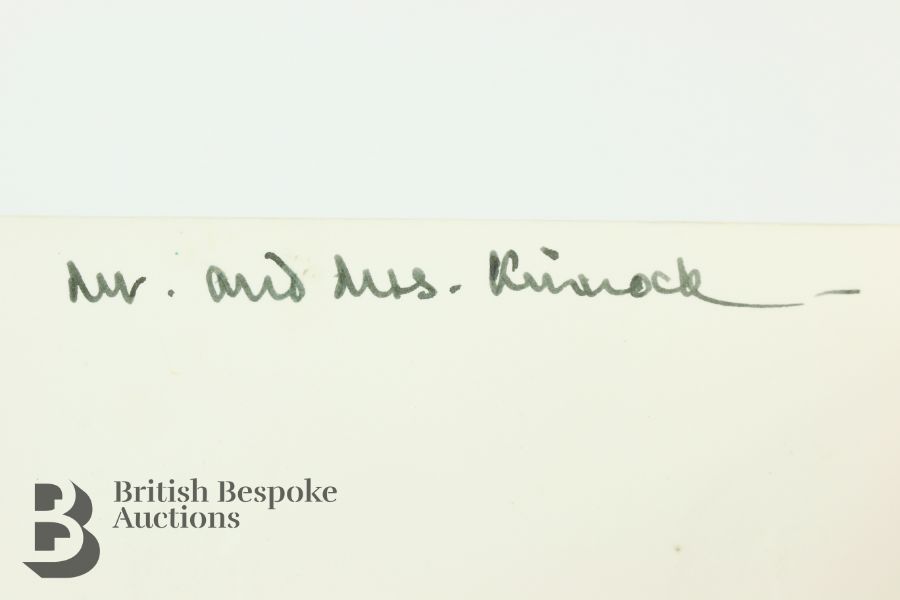 Mr. and Mrs. Kinnock —
British Bespoke
Auctions